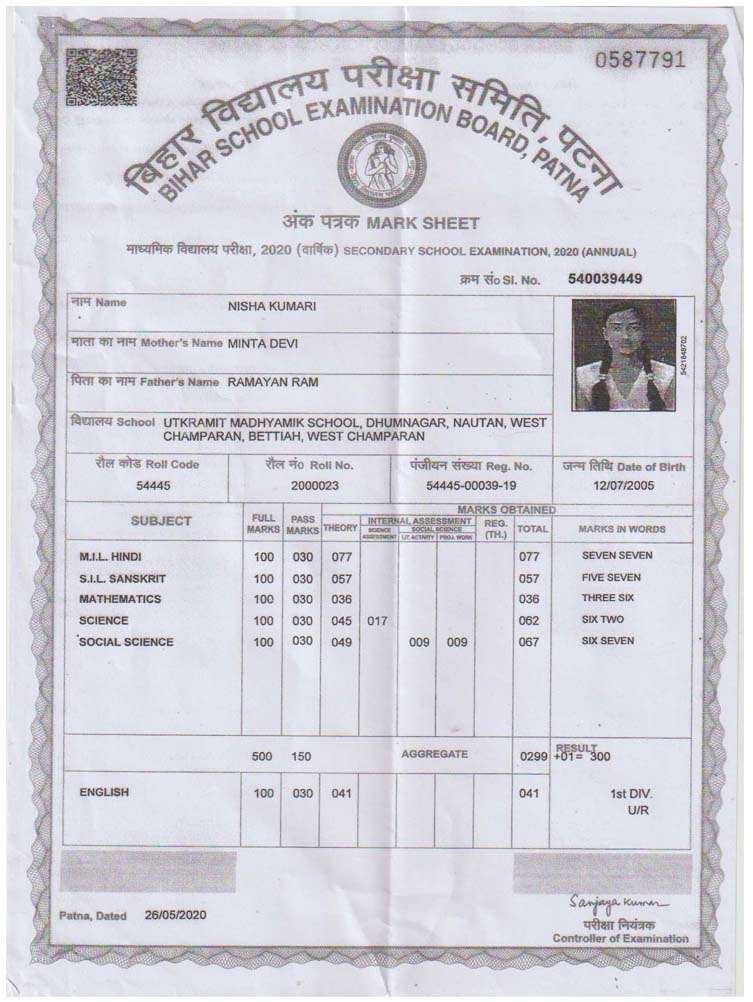 0587791
बिहार विद्यालय परीक्षा समिति, पटना
BIHAR SCHOOL EXAMINATION BOARD, PATNA
अंक पत्रक MARK SHEET
माध्यमिक विद्यालय परीक्षा, 2020 (वार्षिक) SECONDARY SCHOOL EXAMINATION, 2020 (ANNUAL)
क्रम सं० Sl. No. 540039449
नाम Name NISHA KUMARI
माता का नाम Mother's Name MINTA DEVI
5421648702
पिता का नाम Father's Name RAMAYAN RAM
विद्यालय School UTKRAMIT MADHYAMIK SCHOOL, DHUMNAGAR, NAUTAN, WEST
CHAMPARAN, BETTIAH, WEST CHAMPARAN
रौल कोड Roll Code रौल नं० Roll No. पंजीयन संख्या Reg. No. जन्म तिथि Date of Birth
54445 2000023 54445-00039-19 12/07/2005
SUBJECT FULL MARKS PASS MARKS MARKS OBTAINED
THEORY INTERNAL ASSESSMENT REG. (TH.) TOTAL MARKS IN WORDS
SCIENCE ASSESSMENT SOCIAL SCIENCE
LIT. ACTIVITY PROJ. WORK
M.I.L. HINDI 100 030 077 077 SEVEN SEVEN
S.I.L. SANSKRIT 100 030 057 057 FIVE SEVEN
MATHEMATICS 100 030 036 036 THREE SIX
SCIENCE 100 030 045 017 062 SIX TWO
SOCIAL SCIENCE 100 030 049 009 009 067 SIX SEVEN
RESULT
500 150 AGGREGATE 0299 +01= 300
ENGLISH 100 030 041 041 1st DIV.
U/R
Sanjaya Kumar
Patna, Dated 26/05/2020
परीक्षा नियंत्रक
Controller of Examination